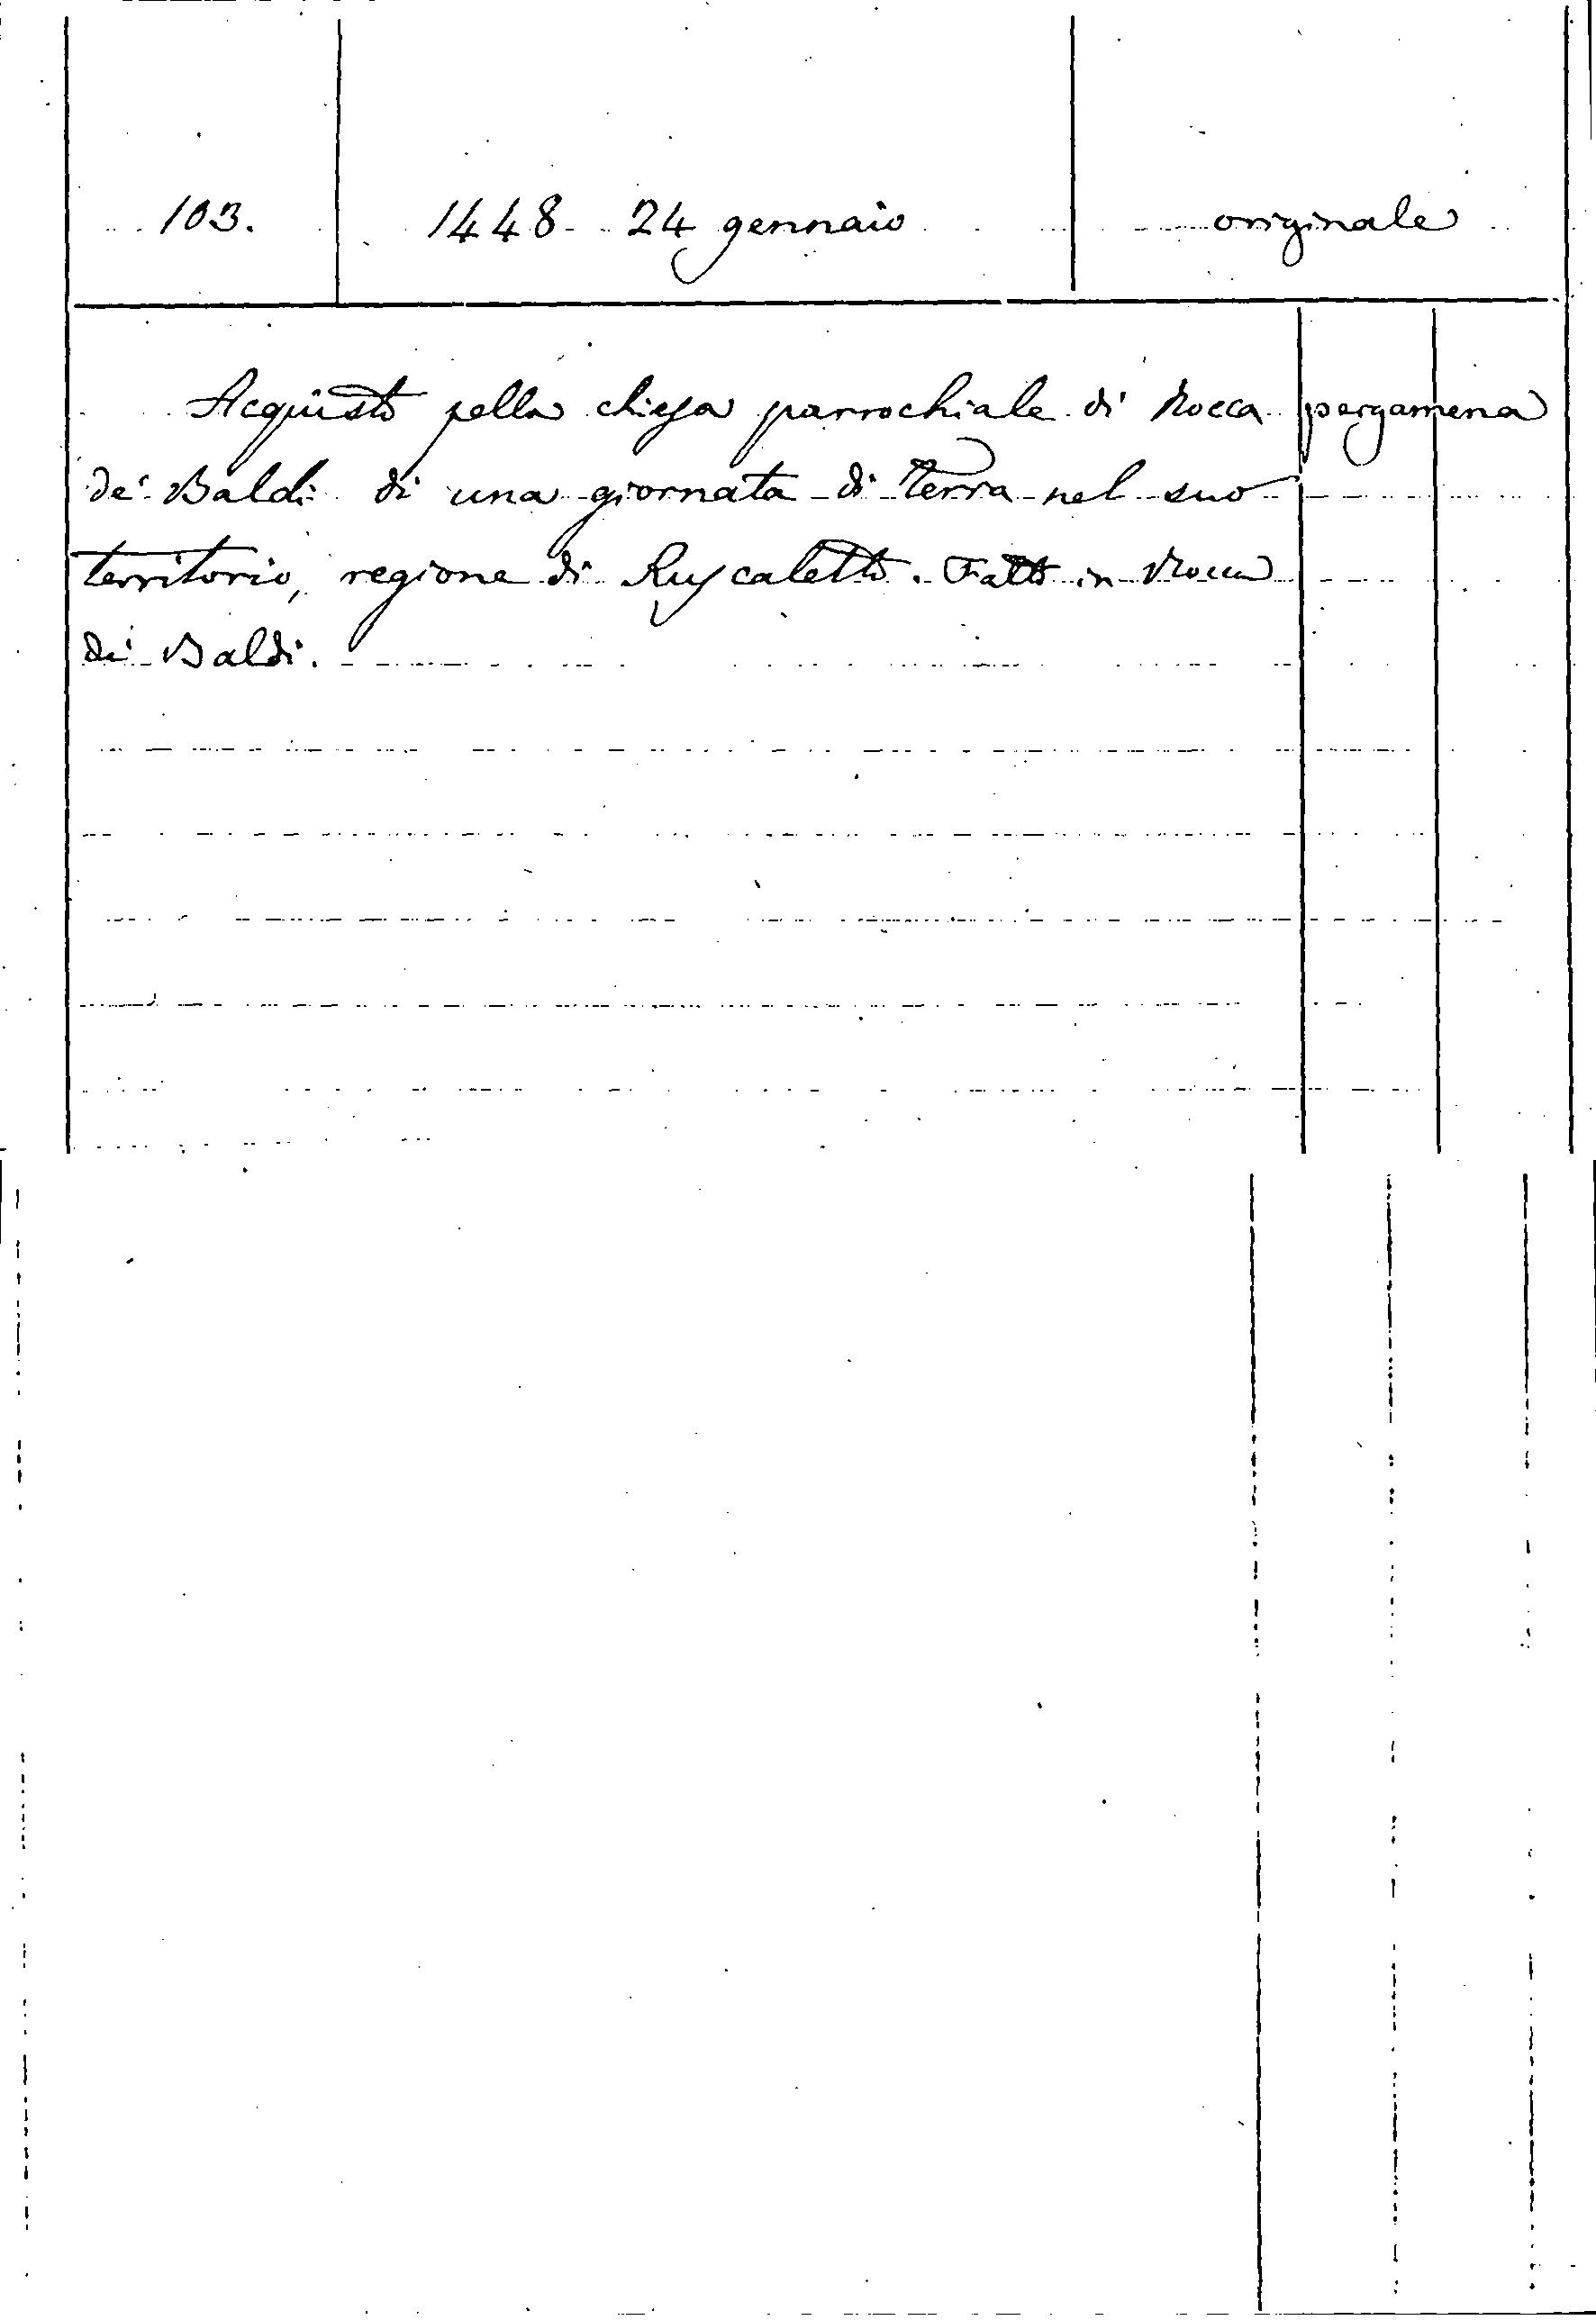 103. 1448 24 gennaio originale
Acquisto pella chiesa parrochiale di Rocca pergamena
de' Baldi di una giornata di terra nel suo
territorio, regione di Ruscaletto. Fatto in Rocca
de' Baldi.